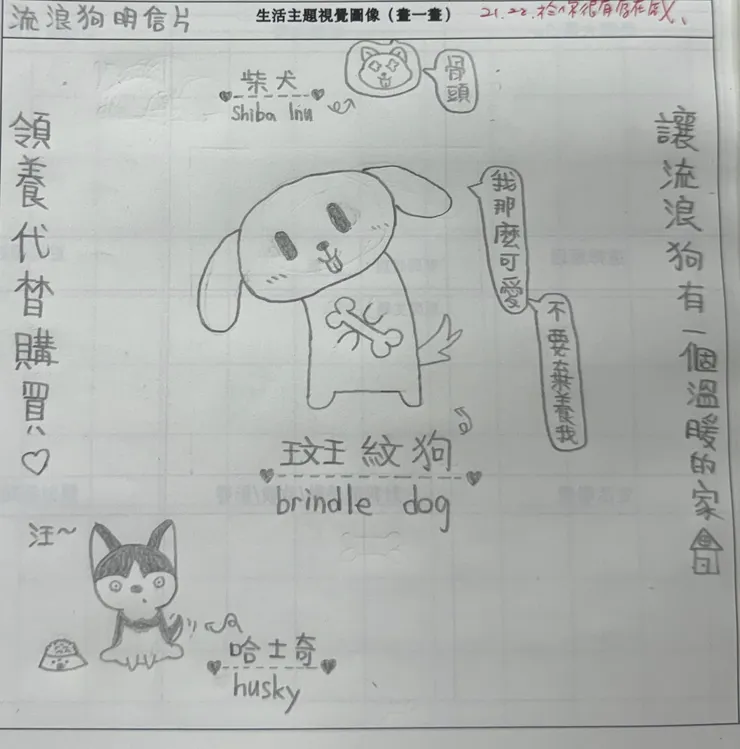 流浪狗明信片
生活主題視覺圖像（畫一畫）
柴犬
Shiba Inu
骨頭
領養代替購買
我那麼可愛
不要棄養我
讓流浪狗有一個溫暖的家
玟王紋狗
brindle dog
汪~
哈士奇
husky